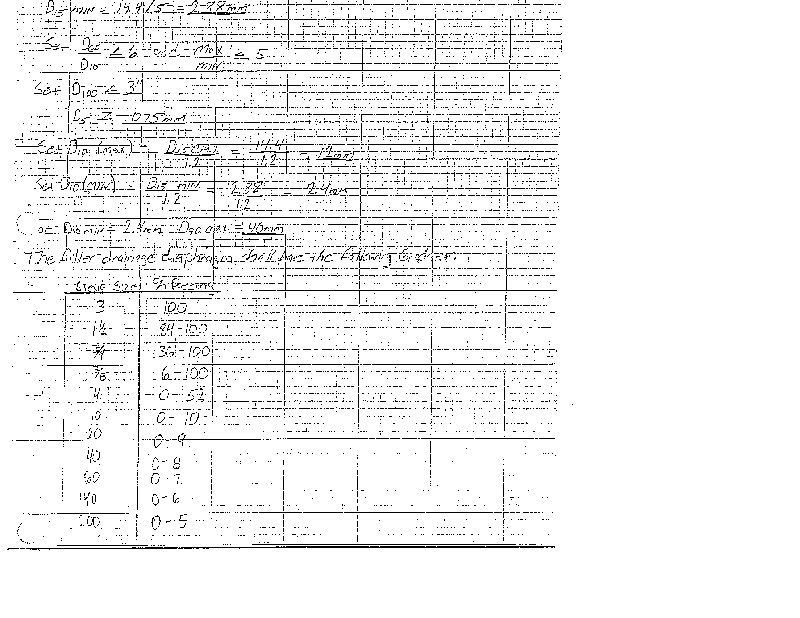 D15 min = 14.4/5 = 2.88mm
D60/D10 ≤ 6 and max/min ≤ 5
Set D100 ≤ 3"
D5 ≥ .075mm
Set D10 (max) = D15 max/1.2 = 14.4/1.2 = 12mm
Set D10 (min) = D15 min/1.2 = 2.88/1.2 = 2.4mm
D10 min = 2.4mm D90 max = 40mm
The filter drainage diaphragm shall have the following Gradation.
Sieve Size % Passing
3 100
1½ 84-100
¾ 36-100
3/8 6-100
4 0-
10 0-10
20 0-9
40 0-8
60 0-7
140 0-6
200 0-5